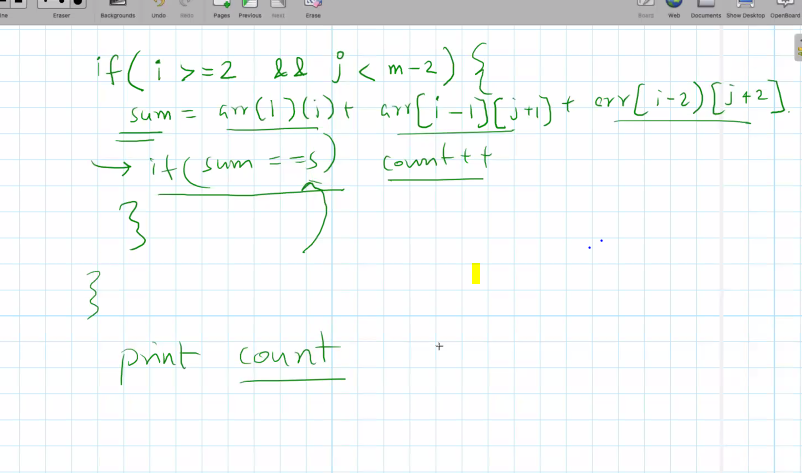 Eraser Backgrounds Undo Redo Pages Previous Next Erase Board Web Documents Show Desktop OpenBoard
if( i >=2 && j < m-2) {
sum = arr(i)(j)+ arr[i-1][j+1] + arr[i-2)[j+2].
→ if(sum ==s) count++
}
}
print count